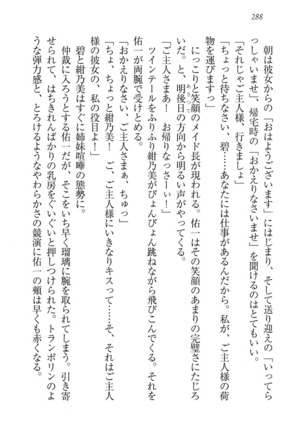 288
　朝は彼女からの「おはようございます」にはじまり、そして送り迎えの「いってら
っしゃいませ」、帰宅時の「おかえりなさいませ」を聞けるのはとてもいい。
「それじゃご主人様、行きましょ」
「ちょっと待ちなさい、碧……あなたには仕事があるんだから。私が、ご主人様の荷
物を運びますっ」
　にっこりと笑顔のメイド長が現われる。佑一はその笑顔のあまりの完璧さにたじろ
いだ。と、明後日の方向から明るい声がやってくる。
「ご主人さまー！　お帰りなさーい！」
　ツインテールをふりふり紺乃美がぴょんぴょん跳ねながら飛びこんでくる。そして
佑一は両腕で受けとめた。
「おかえりなさい、ご主人さまぁ、ちゅっ」
「ちょ、ちょっと紺乃美！　ご、ご主人様にいきなりキスって……そ、それはご主人
様の彼女の、私の役目よ！」
　碧と紺乃美はすぐに姉妹喧嘩の態勢に。
　仲裁に入ろうとする佑一だが、そこをいち早く瑠璃に腕を取られてしまう。引き寄
せられて、はちきれんばかりの乳房をぐいぐいと押しつけられた。トランポリンのよ
うな弾力感と、とろけるようなやわらかさの競演に佑一の頬は早くも赤くなる。